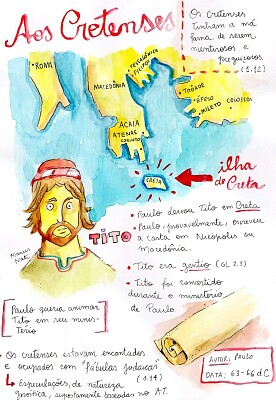 Aos Cretenses
Os Cretenses
tinham a má
fama de serem
mentirosos e
preguiçosos.
(1.12)
ROMA
MACEDÔNIA
TESSALÔNICA
FILIPOS
TRÔADE
ÉFESO
MILETO
COLOSSOS
ACAIA
ATENAS
CORINTO
CRETA
ilha
de Creta
TITO
• Paulo deixou Tito em Creta
• Paulo, provavelmente, escreveu
a carta em Nicópolis ou
Macedônia.
• Tito era gentio (GL 2.3)
• Tito foi convertido
durante o ministério
de Paulo.
Paulo queria animar
Tito em seu minis-
tério
• Os cretenses estavam encantados
e ocupados com "fábulas judaicas"
(1.14)
↳ Especulações, de natureza
gnóstica, supostamente baseadas no AT.
AUTOR: PAULO
DATA: 63-66 d.C